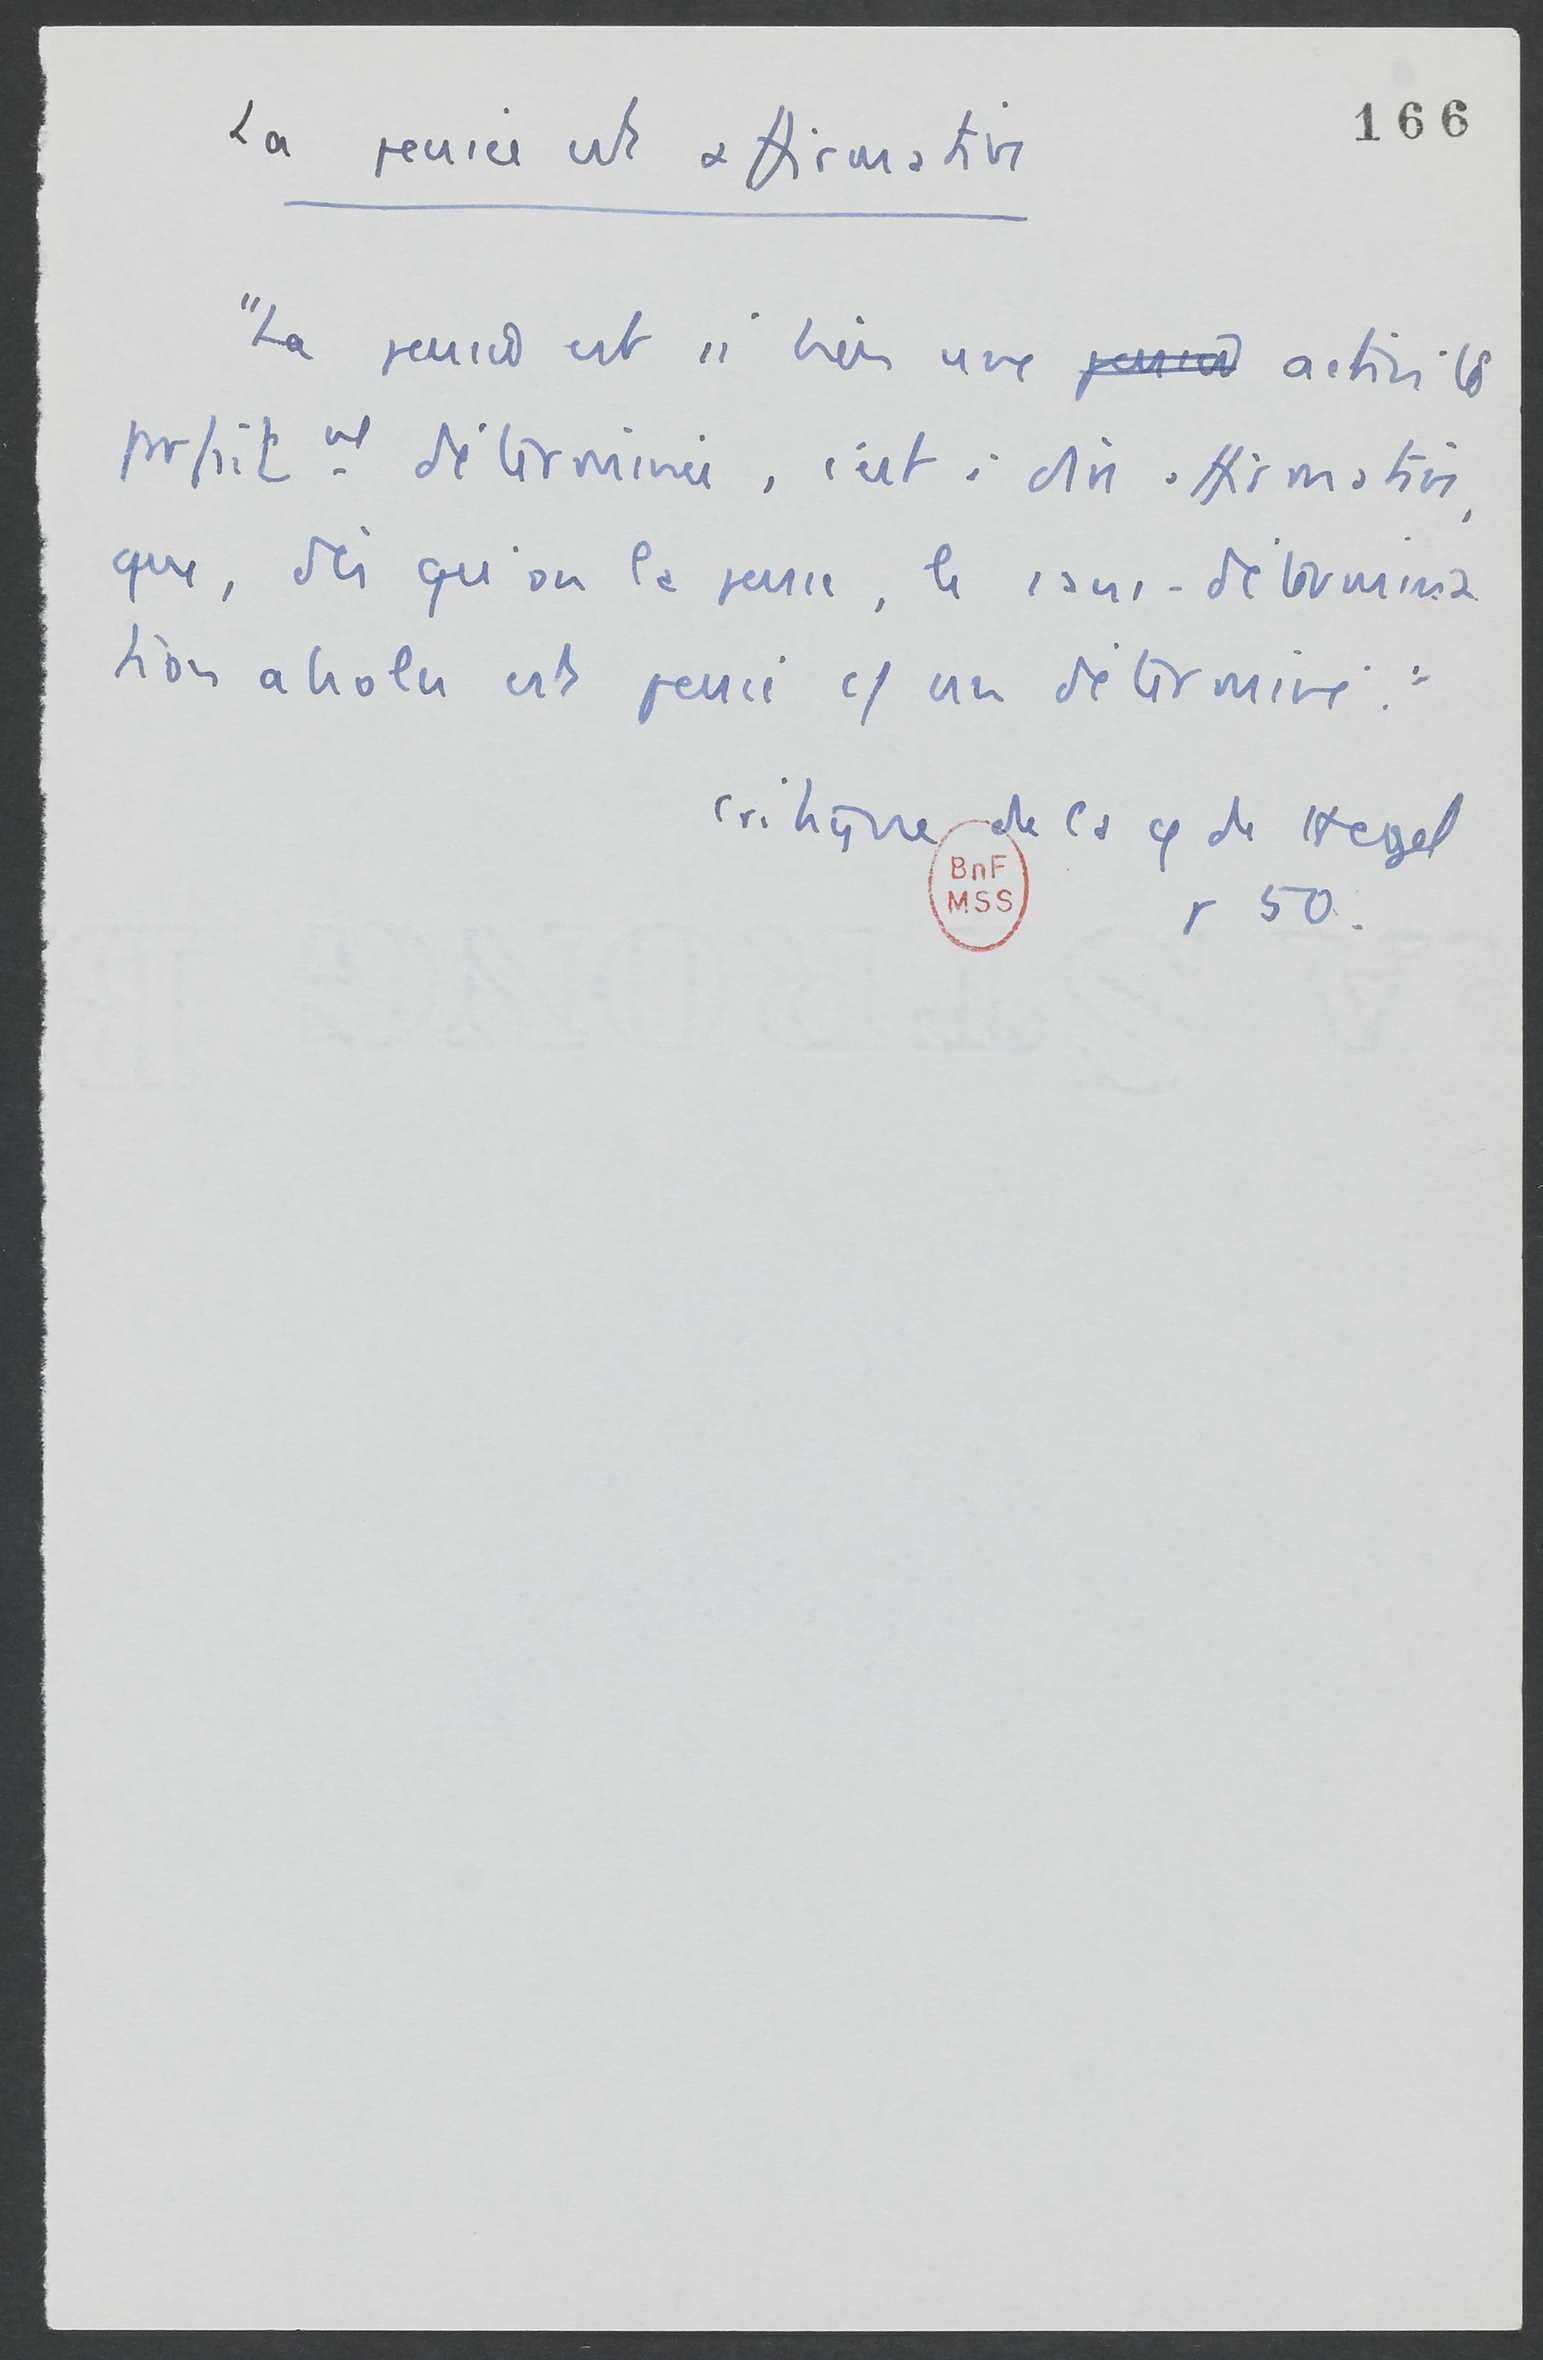 166
La pensée est affirmative
"La pensée est si bien une pensée activité
parfait mt déterminée, c'est à dire affirmative,
que, dès qu'on le pense, le sans-détermina
tion absolu est pensé c/ un déterminé."
Critique de la φ de Hegel
BnF
MSS
p 50.